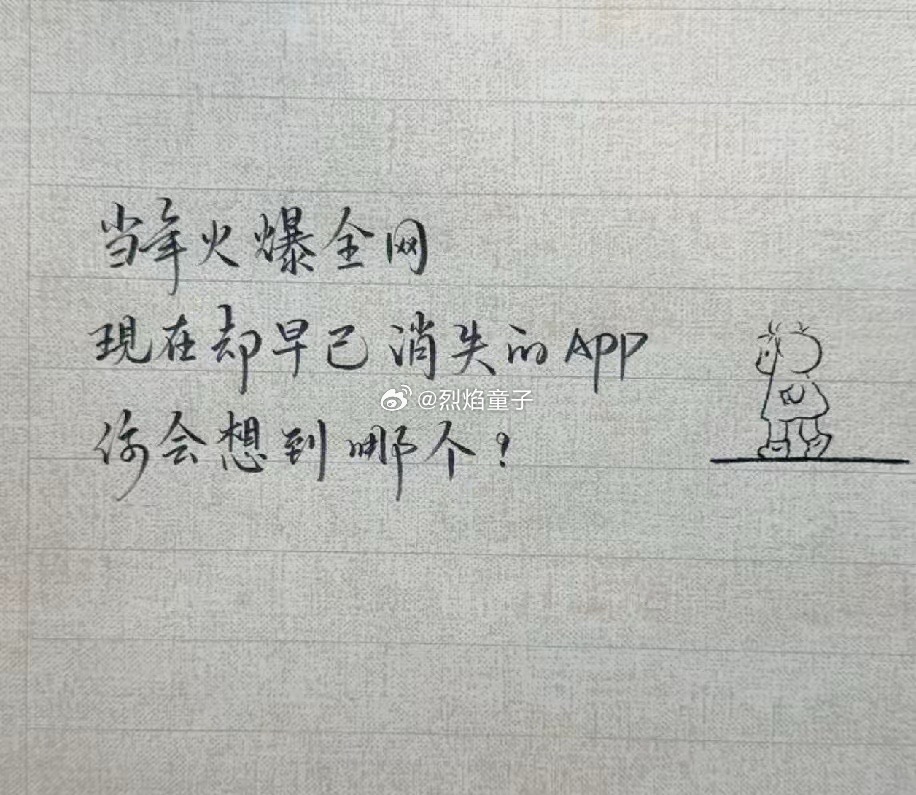 当年火爆全网
現在却早已消失的APP
@烈焰童子
你会想到哪个?